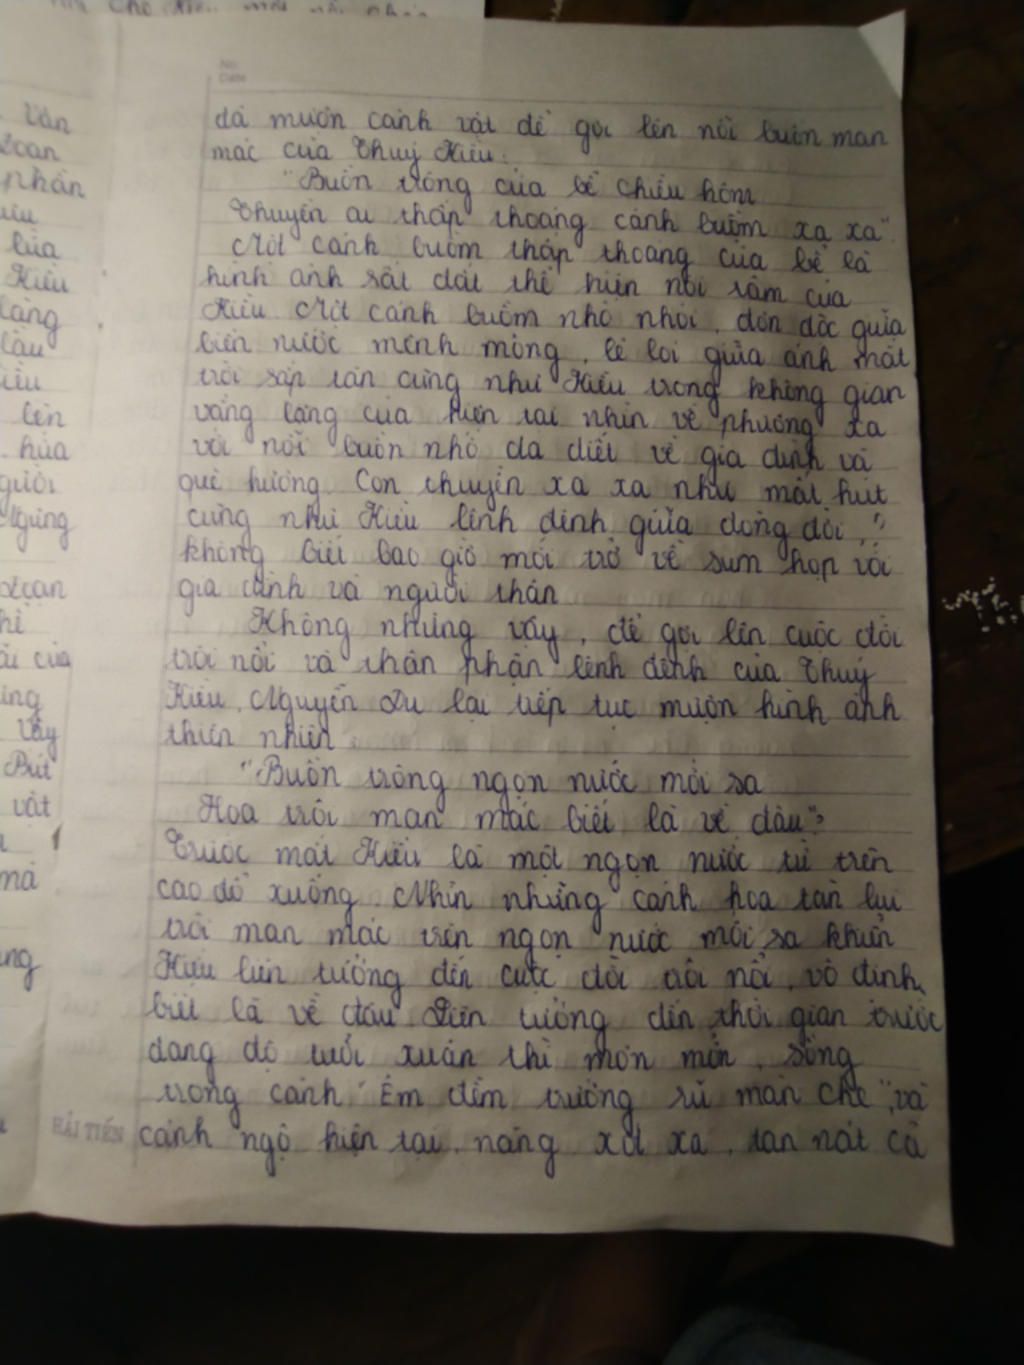 No.
Date
đã mượn cảnh vật để gợi lên nỗi buồn man
mác của Thuý Kiều.
"Buồn trông cửa bể chiều hôm
Thuyền ai thấp thoáng cánh buồm xa xa".
Một cánh buồm thấp thoáng cửa bể là
hình ảnh rất đắt thể hiện nội tâm của
Kiều. Một cánh buồm nhỏ nhoi, đơn độc giữa
biển nước mênh mông, lẻ loi giữa ánh mặt
trời sắp tàn cũng như Kiều trong không gian
vắng lặng của hiện tại nhìn về phương xa
với nỗi buồn nhớ da diết về gia đình và
quê hương. Con thuyền xa xa như mất hút
cũng như Kiều lênh đênh giữa dòng đời,
không biết bao giờ mới trở về sum họp với
gia đình và người thân
Không những vậy, để gợi lên cuộc đời
trôi nổi và thân phận lênh đênh của Thuý
Kiều, Nguyễn Du lại tiếp tục mượn hình ảnh
thiên nhiên
"Buồn trông ngọn nước mới sa
Hoa trôi man mác biết là về đâu"?
Trước mắt Kiều là một ngọn nước từ trên
cao đổ xuống. Nhìn những cánh hoa tàn lụi
trôi man mác trên ngọn nước mới sa khiến
Kiều liên tưởng đến cuộc đời trôi nổi, vô định,
biết là về đâu. Liên tưởng đến thời gian trước
đang độ tuổi xuân thì mơn mởn, sống
trong cảnh "Êm đềm trướng rủ màn che", và
cảnh ngộ hiện tại, nàng xót xa, tan nát cả
HẢI TIẾN
Vân
phận
của
Kiều
lầu
lên
hứa
người
Ngưng
đoạn
của
Vậy
Bút
vật
mà